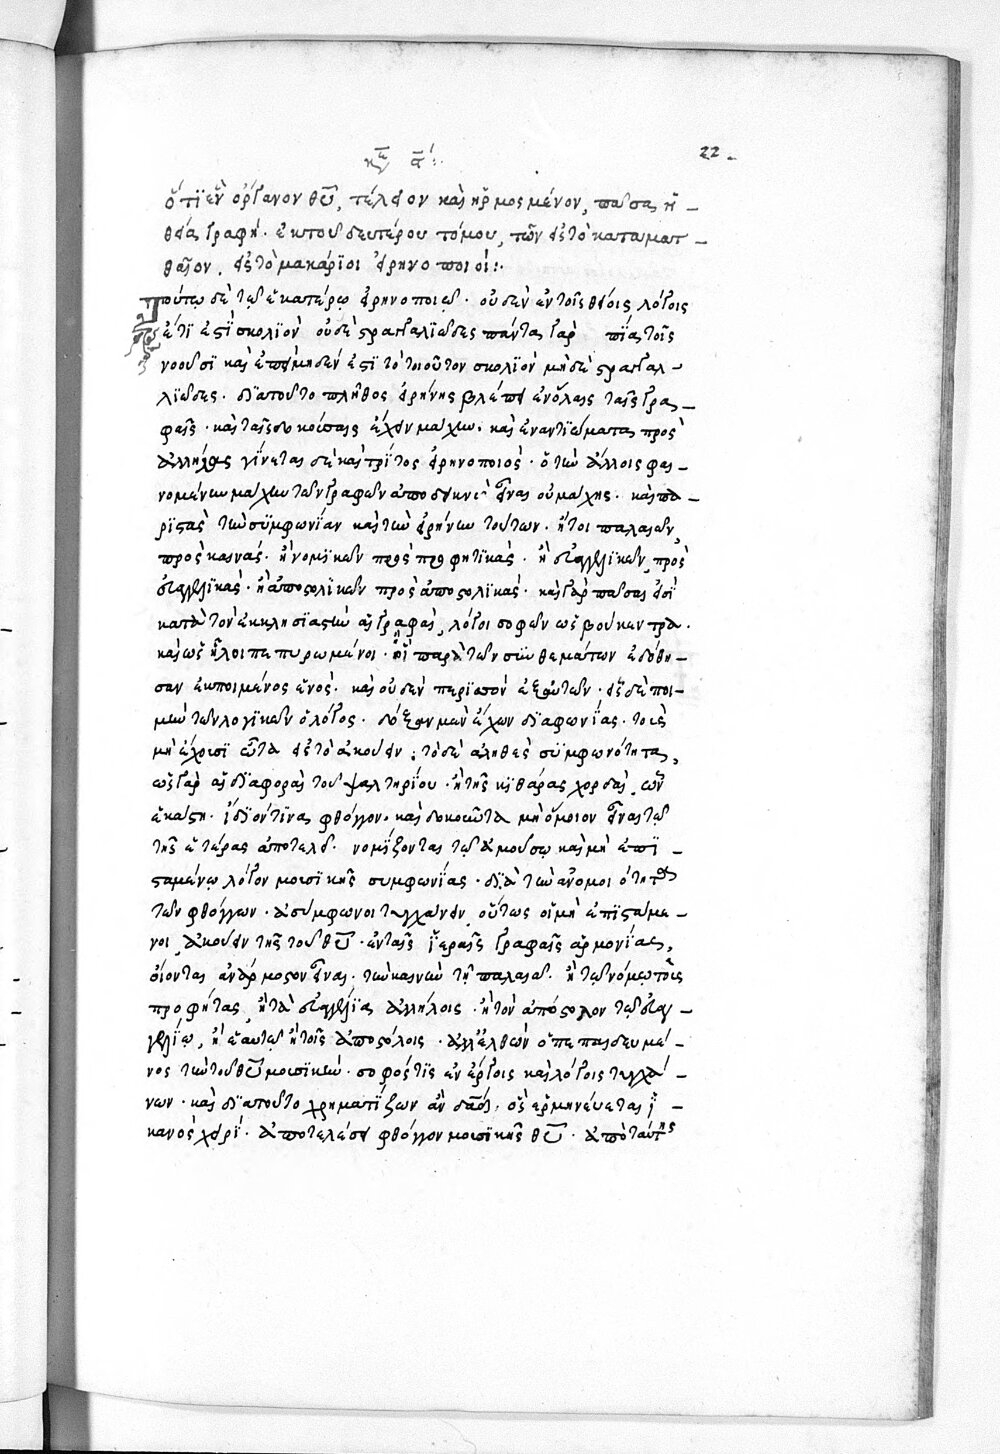 22
κεφ ϛ̄:·
ὅτι ἓν ὄργανον θῡ, τέλειον καὶ ἡρμοσμένον, πᾶσα ἡ
θεία γραφή. ἐκ τοῦ δευτέρου τόμου, τῶν εἰς τὸ κατὰ ματ
θαῖον. εἰς τὸ μακάριοι εἰρηνοποιοί:·
τούτῳ δὲ τῷ ἑκατέρῳ εἰρηνοποιῷ. οὐδὲν ἐν τοῖς θείοις λόγοις
ἔτι ἐστὶ σκολιὸν οὐδὲ στραγγαλιῶδες πάντα γὰρ
νοοῦσι καὶ ἐπεὶ μηδέν ἐστι τὸ τοιοῦτον σκολιὸν μηδὲ στραγγαλ
λιῶδες. διὰ τοῦτο πλῆθος εἰρήνης βλέπει ἐν ὅλαις ταῖς γρα
φαῖς. καὶ ταῖς δοκούσαις ἔχειν μάχην. καὶ ἐναντιώματα πρὸς
ἀλλήλας γίνεται δὲ καὶ τρίτος εἰρηνοποιός. ὁ τὴν ἄλλοις φαι
νομένην μάχην τῶν γραφῶν ἀποδεικνὺς εἶναι οὐ μάχης. καὶ πα
ριστὰς τὴν συμφωνίαν καὶ τὴν εἰρήνην τούτων. ἤτοι παλαιῶν
πρὸς καινάς. ἢ νομικῶν πρὸς προφητικάς. ἢ εὐαγγελικῶν πρὸς
εὐαγγελικάς. ἢ ἀποστολικῶν πρὸς ἀποστολικάς. καὶ γὰρ πᾶσαι εἰσὶ
κατὰ τὸν ἐκκλησιαστὴν αἱ γραφαὶ, λόγοι σοφῶν ὡς βούκεντρα.
καὶ ὡς ἧλοι πεπυρωμένοι. οἳ παρὰ τῶν συνθεμάτων ἐδόθη
σαν ἐκ ποιμένος ἑνός. καὶ οὐδὲν περισσὸν ἐξ αὐτῶν. εἷς δὲ ποι
μὴν τῶν λογικῶν ὁ λόγος. δόξαν μὲν ἔχων διαφωνίας. τοῖς
μὴ ἔχουσι ὦτα εἰς τὸ ἀκούειν: τὸ δὲ ἀληθὲς συμφωνότητα,
ὡς γὰρ αἱ διάφοραι τοῦ ψαλτηρίου. ἢ τῆς κιθάρας χορδαὶ, ὧν
ἑκάστη. ἴδιόν τινα φθόγγον. καὶ δοκοῦντα μὴ ὅμοιον εἶναι τῷ
τῆς ἑτέρας ἀποτελεῖ. νομίζονται τῷ ἀμούσῳ καὶ μὴ ἐπι
σταμένῳ λόγον μουσικῆς συμφωνίας. διὰ τὴν ἀνομοιότητα
τῶν φθόγγων. ἀσύμφωνοι τυγχάνειν. οὕτως οἱ μὴ ἐπιστάμε
νοι ἀκούειν τῆς τοῦ θῡ. ἐν ταῖς ἱεραῖς γραφαῖς ἁρμονίας,
οἴονται ἀνάρμοστον εἶναι. τὴν καινὴν τῇ παλαιᾷ. ἢ τῷ νόμῳ τοὺς
προφήτας ἢ τὰ εὐαγγέλια ἀλλήλοις. ἢ τὸν ἀπόστολον τῷ εὐαγ
γελίῳ, ἢ ἑαυτῷ ἢ τοῖς ἀποστόλοις. ἀλλ' ἐλθὼν ὁ πεπαιδευμέ
νος τὴν τοῦ θῡ μουσικήν. σοφός τις ἐν ἔργοις καὶ λόγοις τυγχά
νων. καὶ διὰ τοῦτο χρηματίζων ἂν δᾱδ. ὃς ἑρμηνεύεται ἱ
κανὸς χειρί. ἀποτελέσει φθόγγον μουσικῆς θῡ. ἀπὸ ταύτης